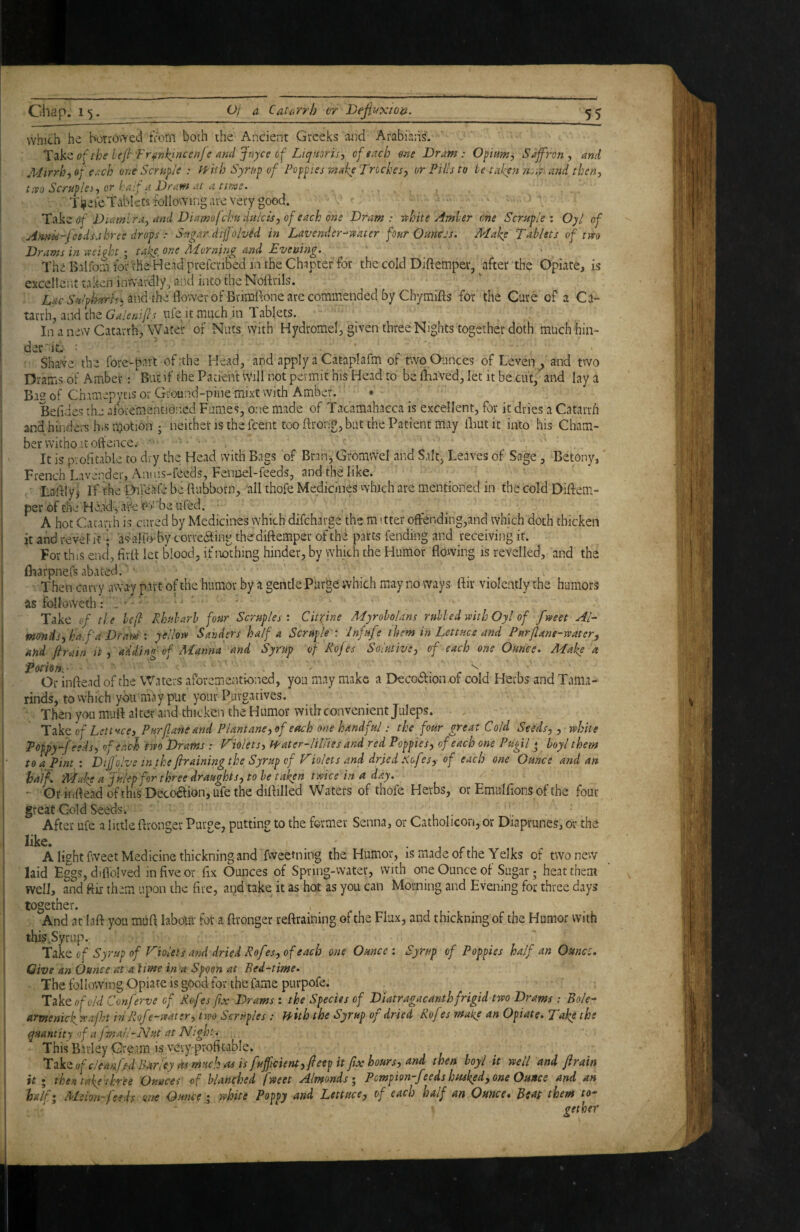 Chap. 15. Of a Catarrh or Defluxion. 55
which he borrowed from both the Ancient Greeks and Arabians.
Take of the best Frankincense and Juyce of Liquoris, of each one Dram : Opium, Saffron , and
Mirrh, of each one Scruple : With Syrup of Poppies make Trockes, or Pills to be taken now and then,
two Scruples, or half a Dram at a time.
These Tablets following are very good.
Take of Diambra, and Diamoschu dulcis, of each one Dram : white Amber one Scruple : Oyl of
Annis-seeds three drops : Sugar dissolved in Lavender-water four Ounces. Make Tablets of two
Drams in weight ; take one Morning and Evening.
The Balsom for the Head prescribed in the Chapter for the cold Distemper, after the Opiate, is
excellent taken inwardly, and into the Nostrils.
Lac Sulphuris, and the flower of Brimstone are commended by Chymists for the Cure of a Ca-
tarrh, and the Galenists use it much in Tablets.
In a new Catarrh, Water of Nuts with Hydromel, given three Nights together doth much hin-
der it.
Shave the fore-part of the Head, and apply a Cataplasm of two Ounces of Leven , and two
Drams of Amber : But if the Patient will not permit his Head to be shaved, let it be cut, and lay a
Bag of Chamepytis or Ground-pine mixt with Amber.
Besides the aforementioned Fumes, one made of Tacamahacca is excellent, for it dries a Catarrh
and hinders his motion ; neither is the scent too strong, but the Patient may shut it into his Cham-
ber without offence.
It is profitable to dry the Head with Bags of Bran, Gromwel and Salt, Leaves of Sage , Betony,
French Lavender, Annis-seeds, Fennel-seeds, and the like.
Lastly, If the Disease be stubborn, all those Medicines which are mentioned in the cold Distem-
per of the Head, are to be used.
A hot Catarrh is cured by Medicines which discharge the matter offending, and which doth thicken
it and revel it ; as also by correcting the distemper of the parts sending and receiving it.
For this end, first let blood, if nothing hinder, by which the Humor flowing is revelled, and the
sharpness abated.
Then carry away part of the humor by a gentle Purge which may no ways stir violently the humors
as followeth :
Take of the best Rhubarb four Scruples : Citrine Myrobolans rubbed with Oyl of sweet Al-
monds, half a Dram : yellow Sanders half a Scruple : Infuse them in Lettuce and Purslane-water,
and strain it , adding of Manna and Syrup of Roses Solutive, of each one Ounce. Make a
Potion.
Or instead of the Waters aforementioned, you may make a Decoction of cold Herbs and Tama-
rinds, to which you may put your Purgatives.
Then you must alter and thicken the Humor with convenient Juleps.
Take of Lettuce, Purslane and Plantane, of each one handful : the four great Cold Seeds, , white
Poppy-seeds, of each two Drams : Violets, Water-lillies and red Poppies, of each one Pugil ; boyl them
to a Pint : Dissolve in the straining the Syrup of Violets and dried Roses, of each one Ounce and an
half. Make a Julep for three draughts, to be taken twice in a day.
Or instead of this Decoction, use the distilled Waters of those Herbs, or Emulsions of the four
great Cold Seeds.
After use a little stronger Purge, putting to the former Senna, or Catholicon, or Diaprunes, or the
like.
A light sweet Medicine thickning and sweetning the Humor, is made of the Yelks of two new
laid Eggs, dissolved in five or six Ounces of Spring-water, with one Ounce of Sugar ; heat them
well, and stir them upon the fire, and take it as hot as you can Morning and Evening for three days
together.
And at last you must labour for a stronger restraining of the Flux, and thickning of the Humor with
this Syrup.
Take of Syrup of Violets and dried Roses, of each one Ounce : Syrup of Poppies half an Ounce.
Give an Ounce at a time in a Spoon at Bed-time.
The following Opiate is good for the same purpose.
Take of old Conserve of Roses six Drams : the Species of Diatragacanth frigid two Drams : Bole-
armenick washt in Rose-water, two Scruples : With the Syrup of dried Roses make an Opiate. Take the
quantity of a small-Nut at Night.
This Barley Cream is very profitable.
Take of cleansed Barley as much as is sufficient, steep it six hours, and then boyl it well and strain
it ; then take three Ounces of blanched sweet Almonds ; Pompion-seeds husked, one Ounce and an
half ; Melon-seeds one Ounce ; white Poppy and Lettuce, of each half an Ounce. Beat them to-
gether